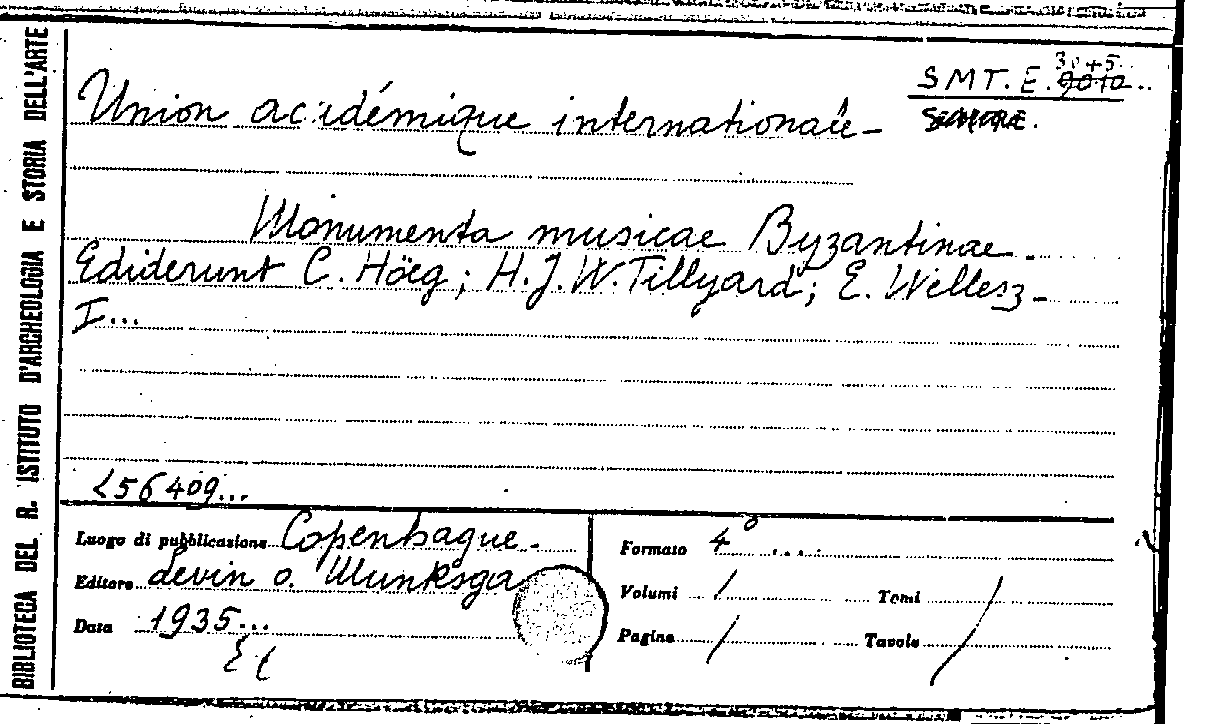 BIBLIOTECA DEL R. ISTITUTO D'ARCHEOLOGIA E STORIA DELL'ARTE
30+5.
SMT. E. 9010
Union académique internationale
Monumenta musicae Byzantinae.
Ediderunt C. Höeg; H.J.W. Tillyard; E. Wellesz-
I...
256409...
Luogo di pubblicazione Copenhague.
Editore Levin o. Munksga
Data 1935...
Formato 4° ....
Volumi / Tomi
Pagine / Tavole /